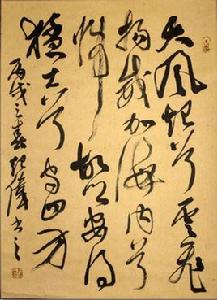 大風起兮雲飛
揚威加海内兮
歸故鄉安得
猛士兮守四方
丙戌之春 書之